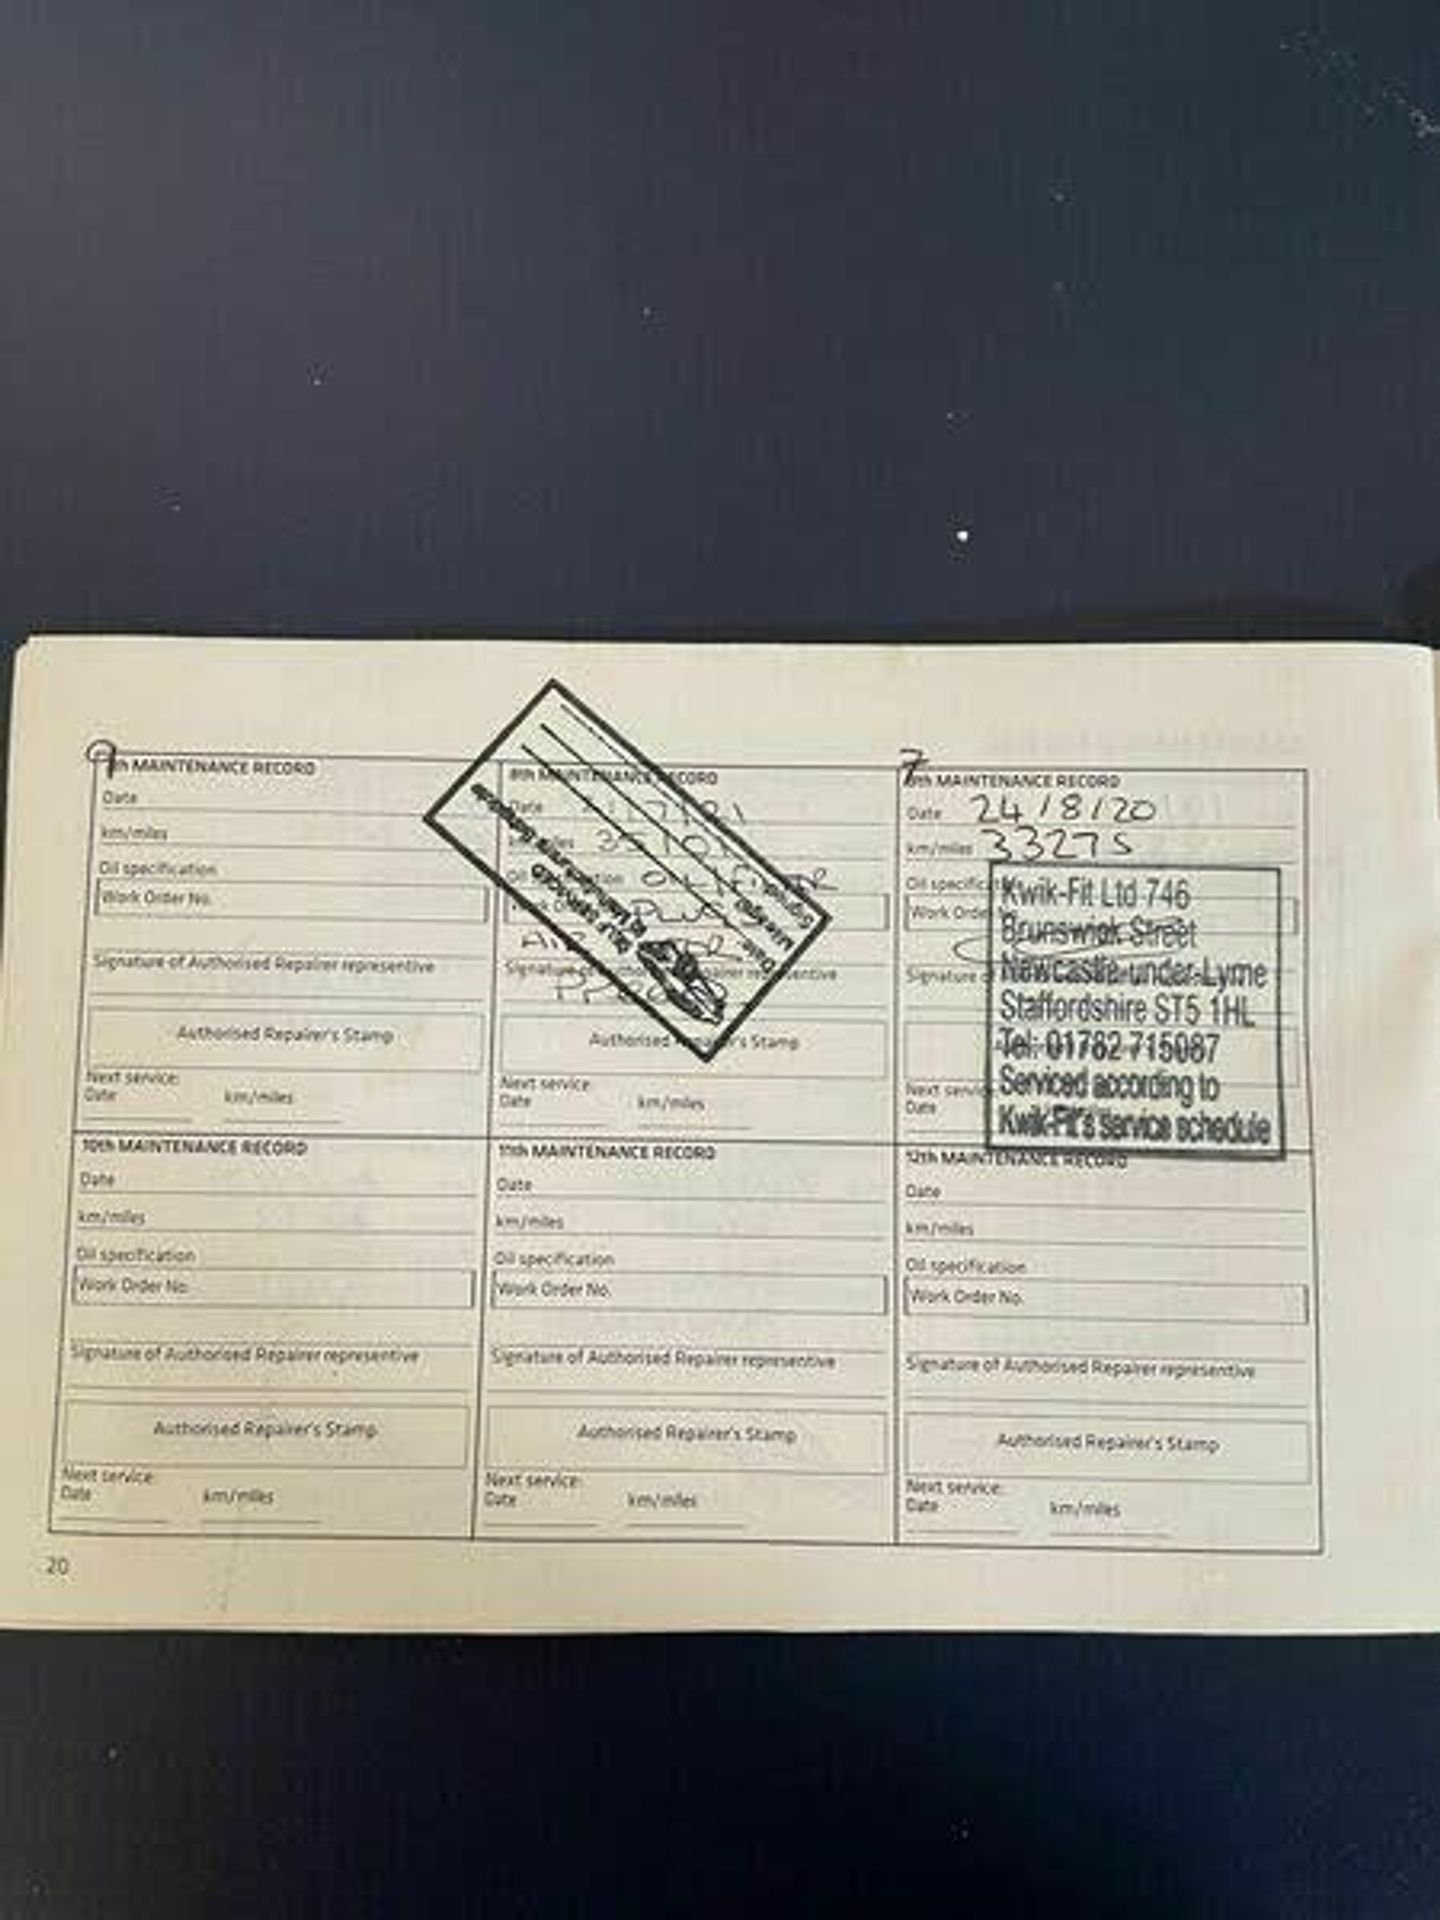 9th MAINTENANCE RECORD
Date
km/miles
Oil specification
Work Order No.
Signature of Authorised Repairer representive
Authorised Repairer's Stamp
Next service:
Date km/miles
8th MAINTENANCE RECORD
Date
km/miles
Oil specification
Signature of Authorised Repairer representive
Authorised Repairer's Stamp
Next service:
Date km/miles
Signed
Mileage
Date
SERVICED
to Manufacturers Schedule
7th MAINTENANCE RECORD
Date 24/8/20
km/miles 33275
Oil specific
Work Orde
Signature o
Next servic
Date
Kwik-Fit Ltd 746
Brunswick Street
Newcastle-under-Lyme
Staffordshire ST5 1HL
Tel: 01782 715087
Serviced according to
Kwik-Fit's service schedule
10th MAINTENANCE RECORD
Date
km/miles
Oil specification
Work Order No.
Signature of Authorised Repairer representive
Authorised Repairer's Stamp
Next service:
Date km/miles
11th MAINTENANCE RECORD
Date
km/miles
Oil specification
Work Order No.
Signature of Authorised Repairer representive
Authorised Repairer's Stamp
Next service:
Date km/miles
12th MAINTENANCE RECORD
Date
km/miles
Oil specification
Work Order No.
Signature of Authorised Repairer representive
Authorised Repairer's Stamp
Next service:
Date km/miles
20